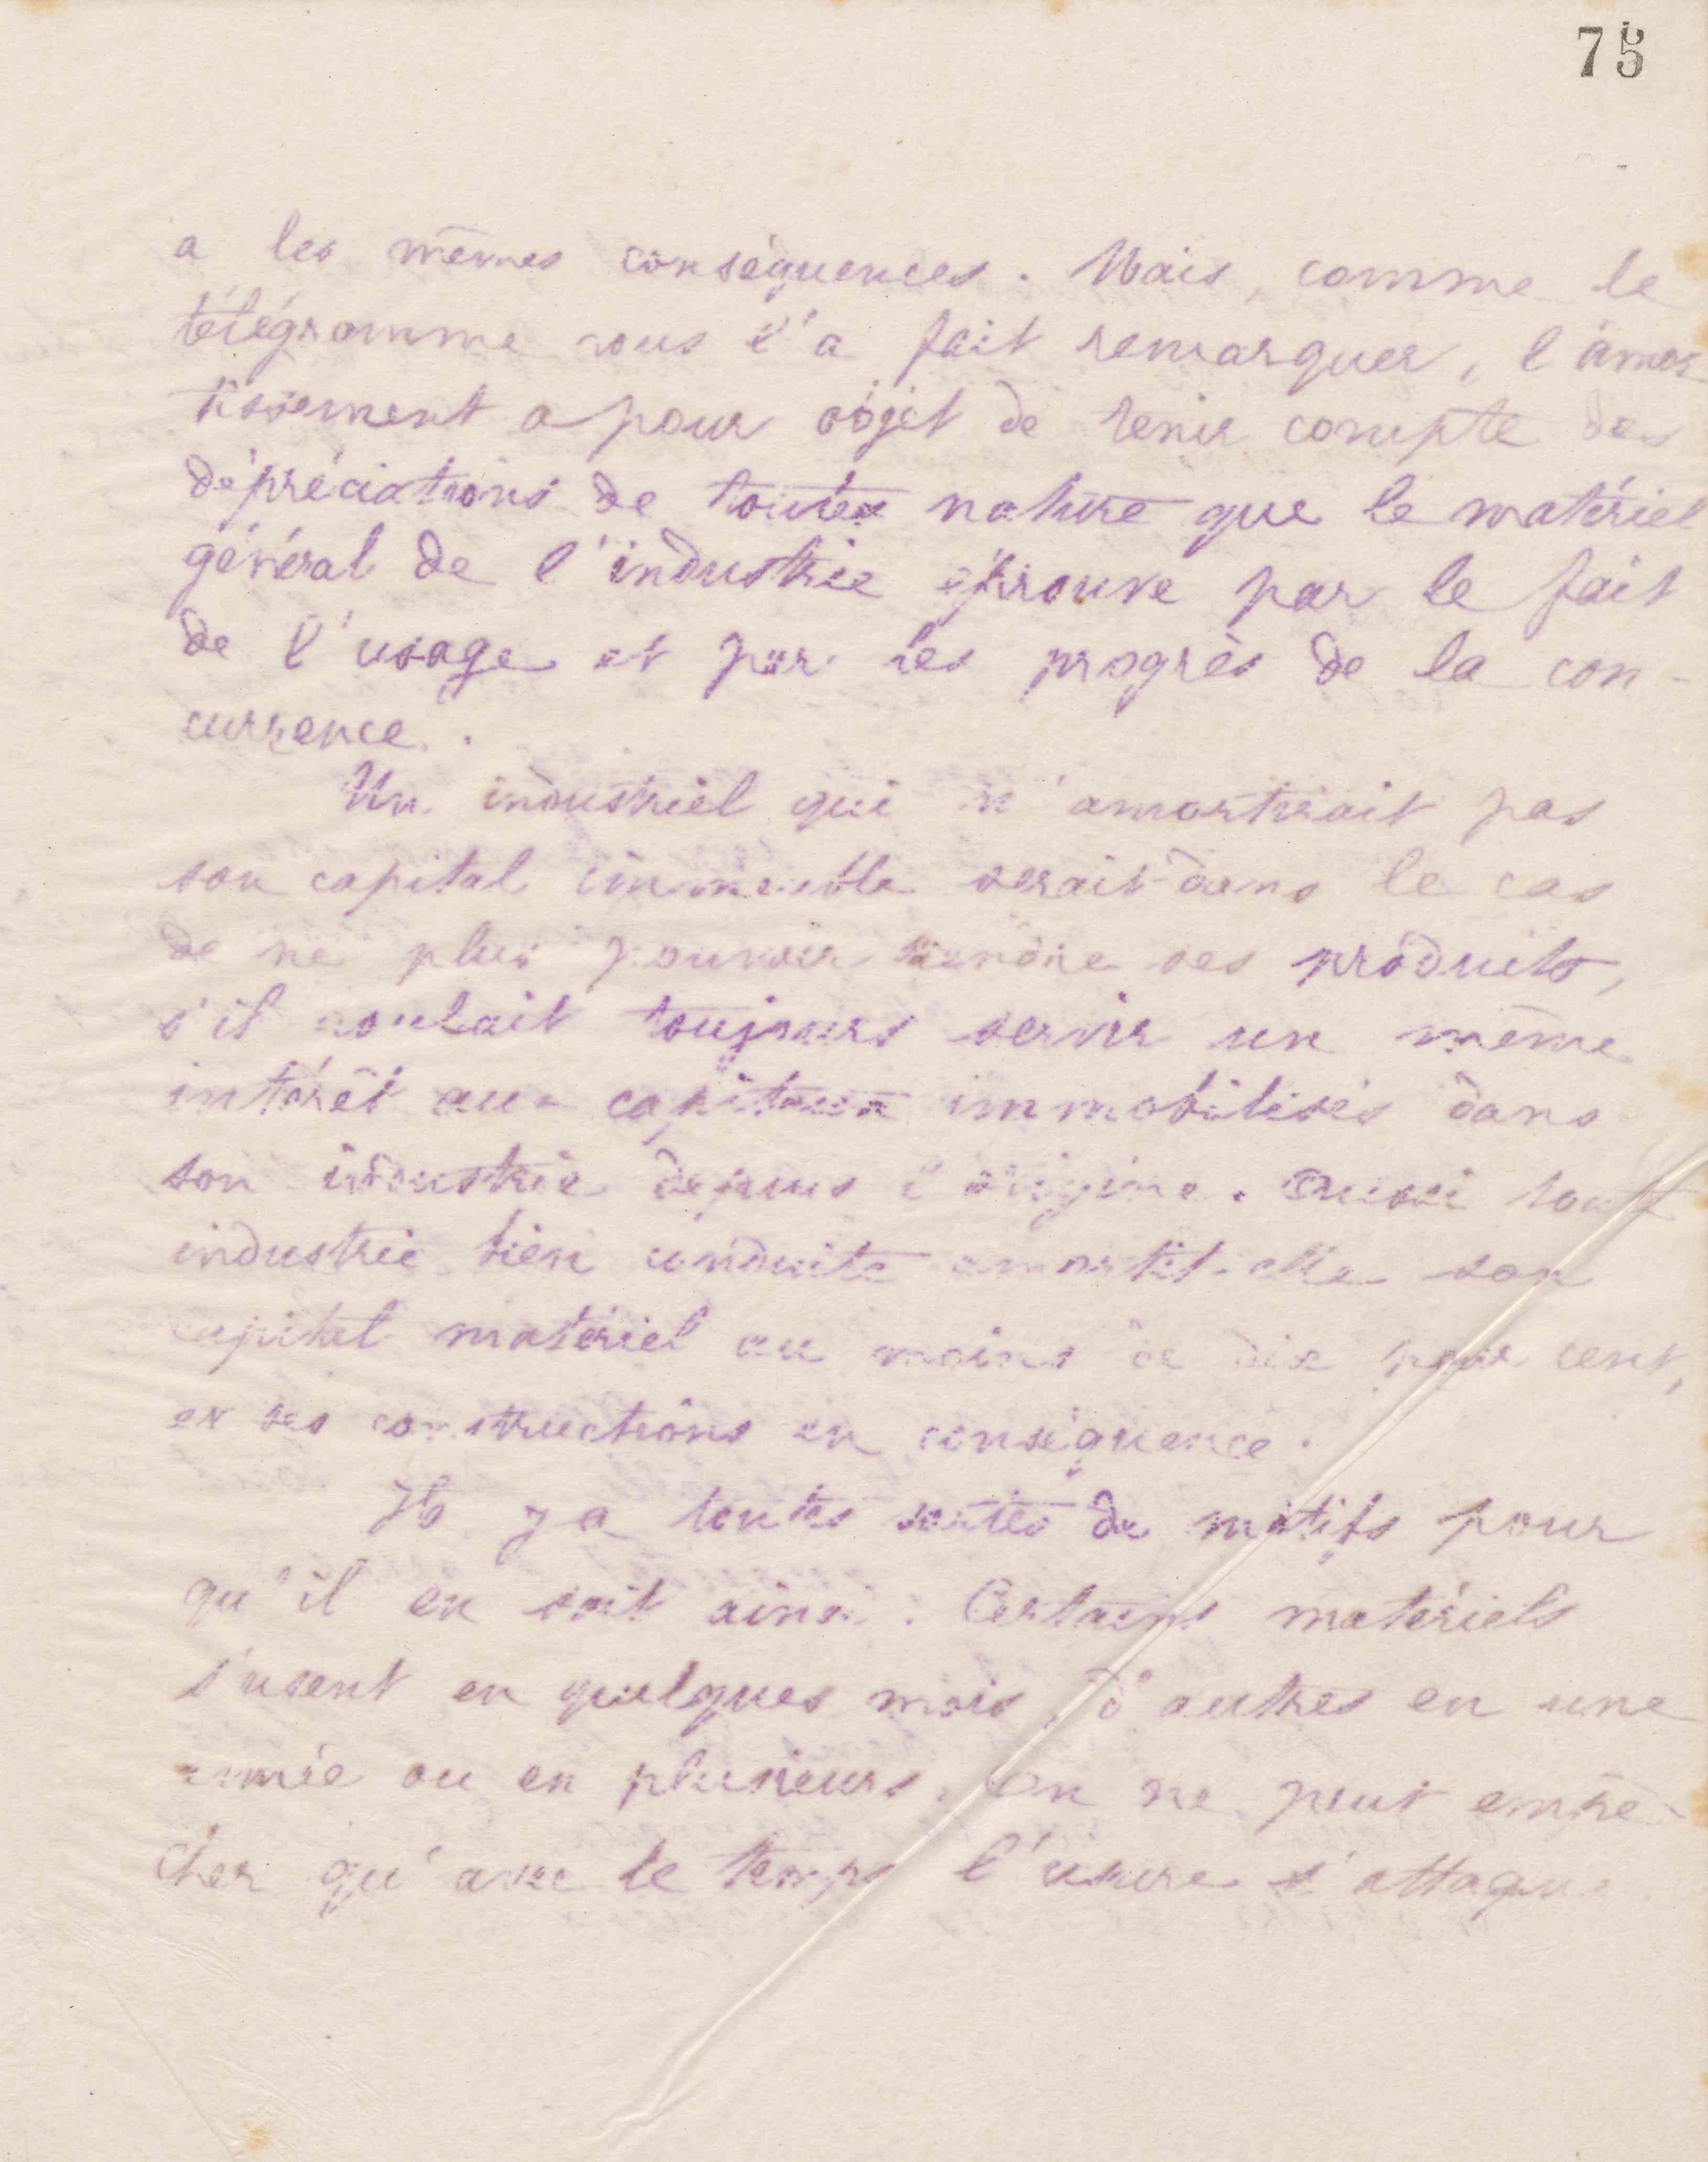 75
a les mêmes conséquences. Mais, comme le
télégramme vous l'a fait remarquer, l'amor
tissement a pour objet de tenir compte des
dépréciations de toutes nature que le matériel
général de l'industrie éprouve par le fait
de l'usage et par les progrès de la con-
currence.
Un industriel qui n'amortirait pas
son capital immeuble serait dans le cas
de ne plus pouvoir vendre ses produits,
s'il voulait toujours servir un même
intérêt aux capitaux immobilisés dans
son industrie depuis l'origine. Aussi toute
industrie bien conduite amortit-elle son
capital matériel au moins de dix pour cent,
et ses constructions en conséquence.
Il y a toutes sortes de motifs pour
qu'il en soit ainsi. Certains matériels
s'usent en quelques mois, d'autres en une
année ou en plusieurs. On ne peut empê-
cher qu'avec le temps l'usure s'attaque